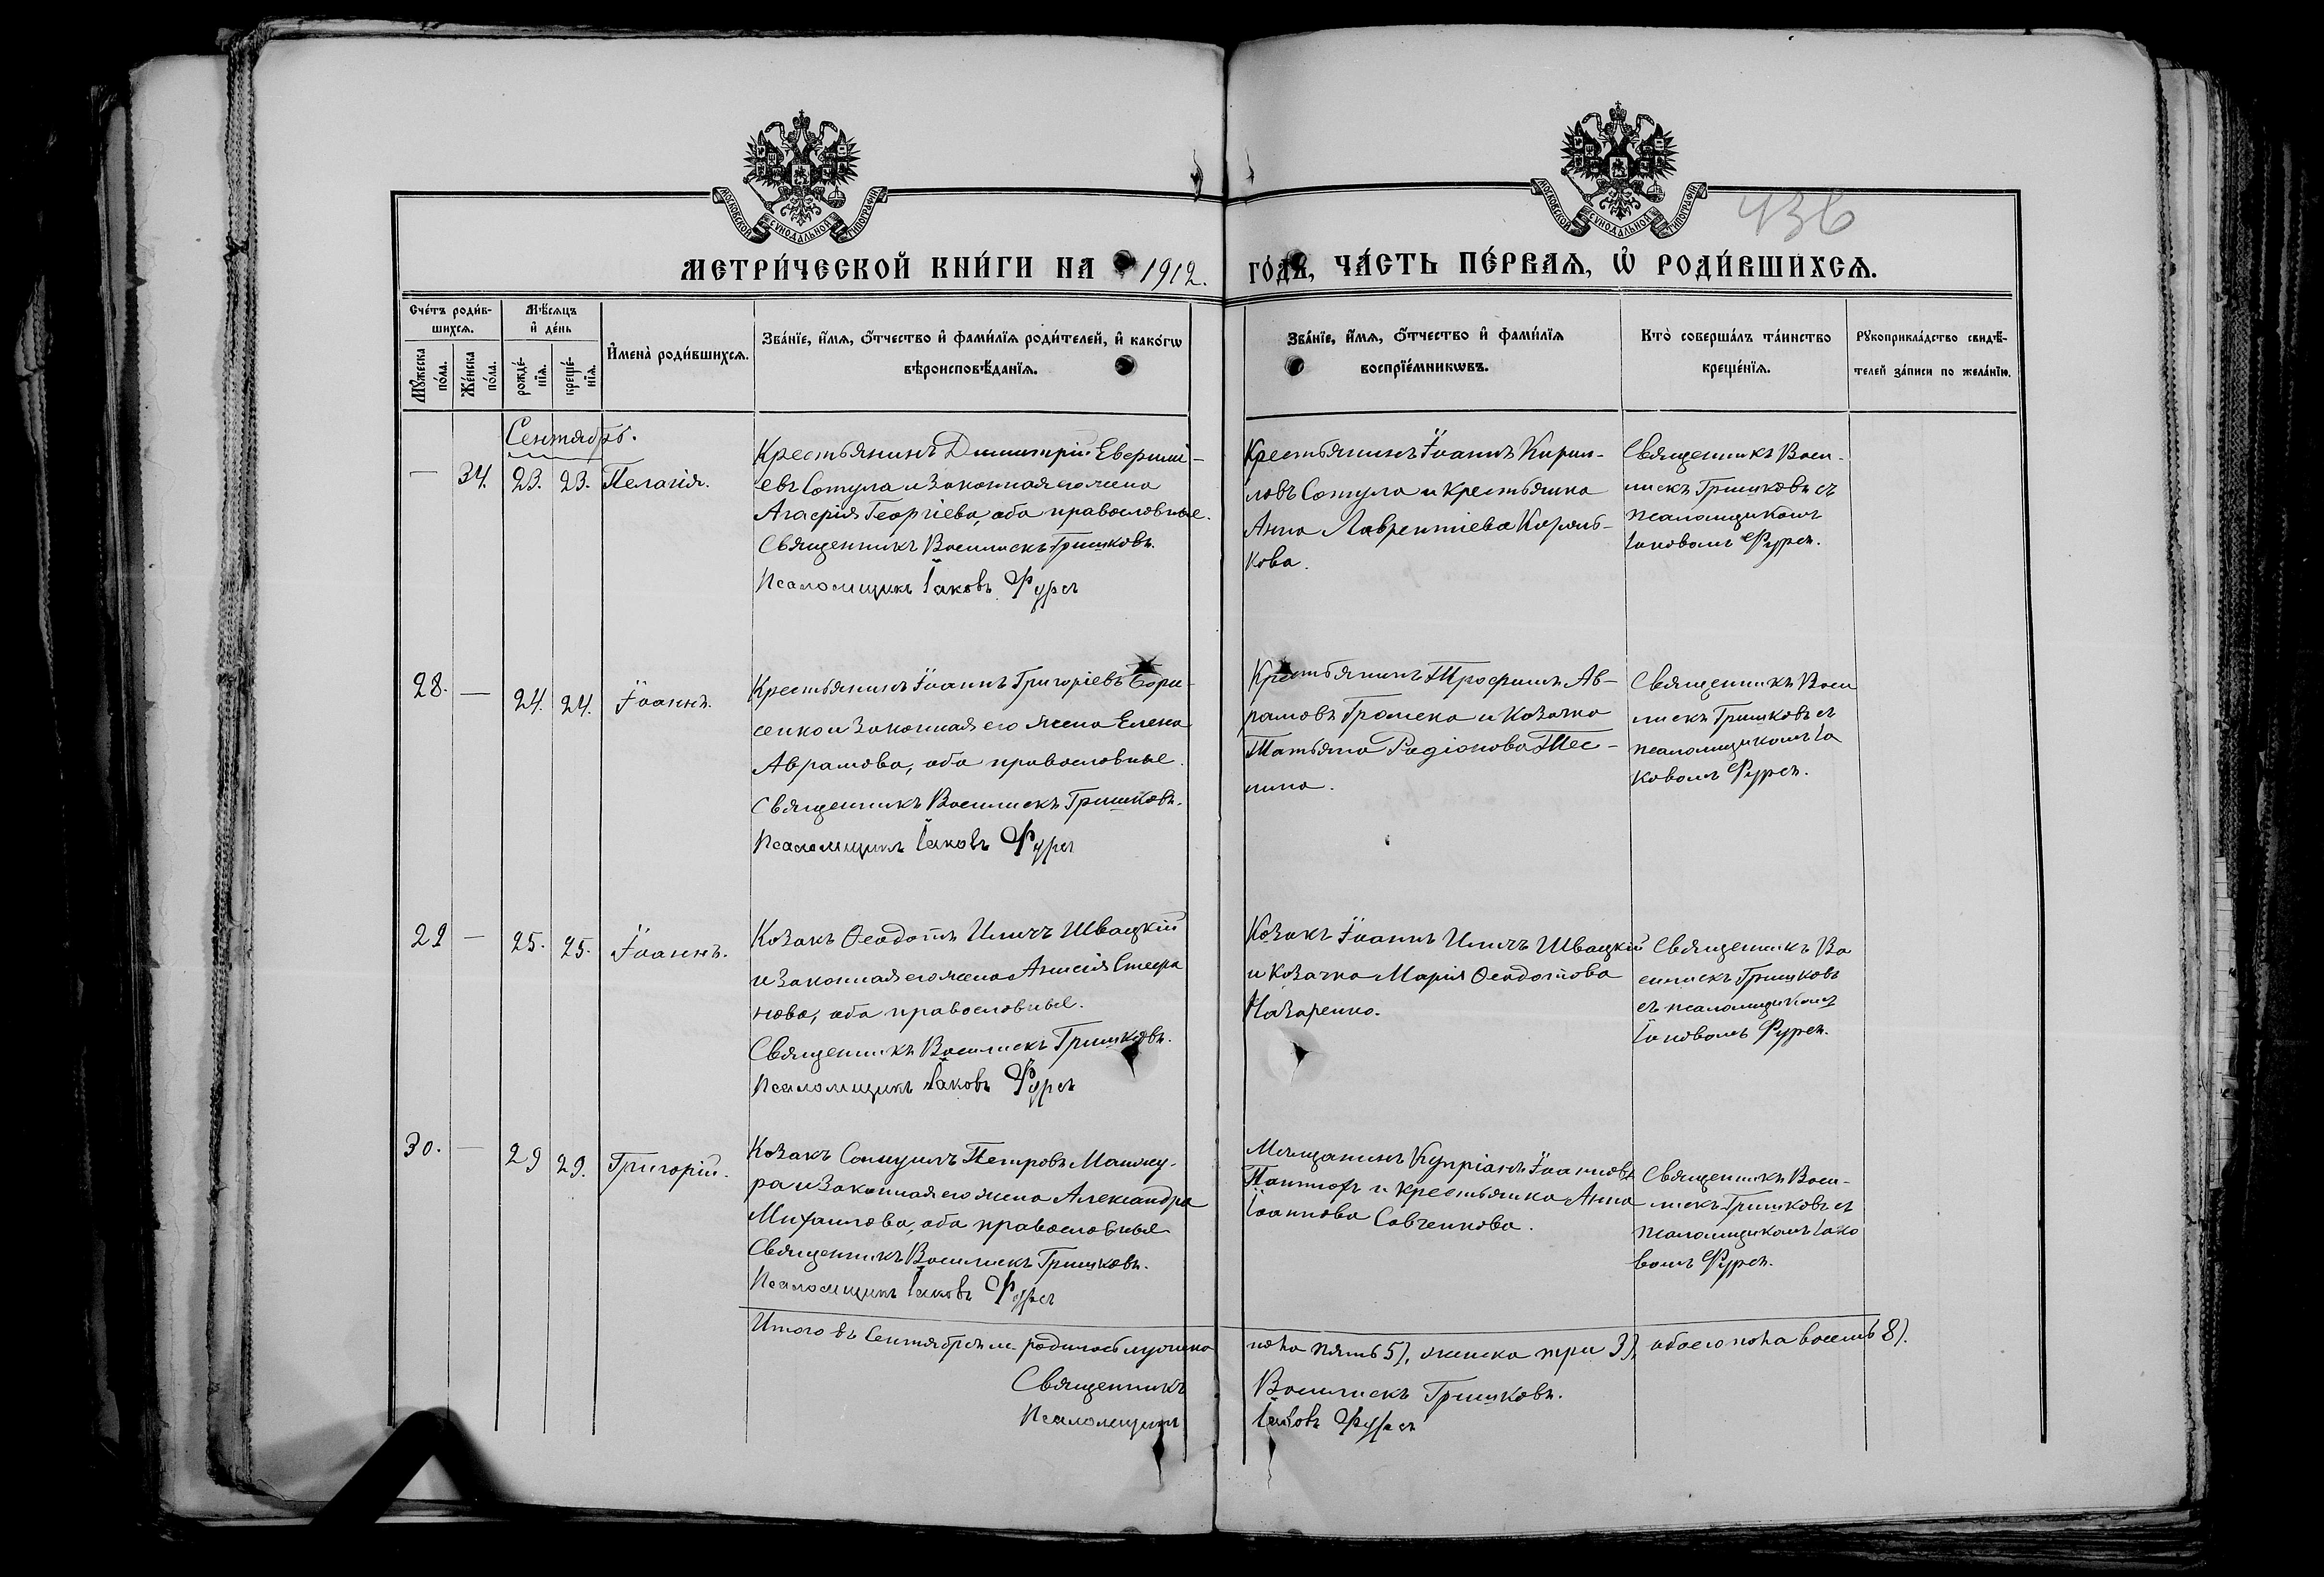 МОСКОВСКОЙ СѴНОДАЛЬНОЙ ТИПОГРАФІИ
МОСКОВСКОЙ СѴНОДАЛЬНОЙ ТИПОГРАФІИ
436
МЕТРИ́ЧЕСКОЙ КНИ́ГИ НА 1912. ГО́ДЪ, ЧА́СТЬ ПЕ́РВАѦ, Ѡ҆ РОДИ́ВШИХСѦ.
Сче́тъ роди́в-
шихсѧ.
Мꙋ́жеска по́ла.
Же́нска по́ла.
Мѣ́сѧцъ
и҆ де́нь
рожде́-
нїѧ.
креще́-
нїѧ.
И҆мена̀ роди́вшихсѧ.
Зва́нїе, и҆́мѧ, ѻ҆́тчество и҆ фами́лїѧ роди́телей, и҆ како́гѡ
вѣроисповѣ́данїѧ.
Зва́нїе, и҆́мѧ, ѻ҆́тчество и҆ фами́лїѧ
воспрїе́мникѡвъ.
Кто̀ соверша́лъ та́инство
креще́нїѧ.
Рꙋкоприкла́дство свидѣ́-
телей за́писи по жела́нїю.
Сентябрь.
— 34. 23. 23. Пелагія.
Крестьянинъ Димитрій Евфимі-
евъ Сотула и законная его жена
Агафія Георгіева, оба православные.
Священникъ Василискъ Гришковъ.
Псаломщикъ Іаковъ Фурса
Крестьянинъ Іоаннъ Кирил-
ловъ Сотула и крестьянка
Анна Лаврентіева Кораб-
кова.
Священникъ Васи-
лискъ Гришковъ съ
псаломщикомъ
Іаковомъ Фурсъ.
28. — 24. 24. Іоаннъ.
Крестьянинъ Іоаннъ Григоріевъ Бори-
сенко и законная его жена Елена
Аврамова, оба православные.
Священникъ Василискъ Гришковъ.
Псаломщикъ Іаковъ Фурса
Крестьянинъ Трофимъ Ав-
рамовъ Громека и козачка
Татьяна Радіонова Тес-
лина.
Священникъ Васи
лискъ Гришковъ съ
псаломщикомъ Іа
ковомъ Фурсъ.
29 — 25. 25. Іоаннъ.
Козакъ Ѳеодотъ Иличъ Швацкій
и законная его жена Анисія Стефа
нова, оба православные.
Священникъ Василискъ Гришковъ.
Псаломщикъ Іаковъ Фурса
Козакъ Іоаннъ Иличъ Швацкій
и козачка Марія Ѳеодотова
Назаренко.
Священникъ Ва
силискъ Гришковъ
съ псаломщикомъ
Іаковомъ Фурсъ.
30. — 29 29. Григорій.
Козакъ Самуилъ Петровъ Манжу-
ра и законная его жена Александра
Михаилова, оба православные
Священникъ Василискъ Гришковъ.
Псаломщикъ Іаковъ Фурса
Мѣщанинъ Кипріанъ Іоанновъ
и крестьянка Анна
Іоаннова Савченкова.
Священникъ Васи-
лискъ Гришковъ съ
псаломщикомъ Іако
вомъ Фурсъ.
Итого въ Сентябрѣ м. родилось мужска пола пять 5), женска три 3), обоего пола восемь 8).
Священникъ Василискъ Гришковъ.
Псаломщикъ Іаковъ Фурса